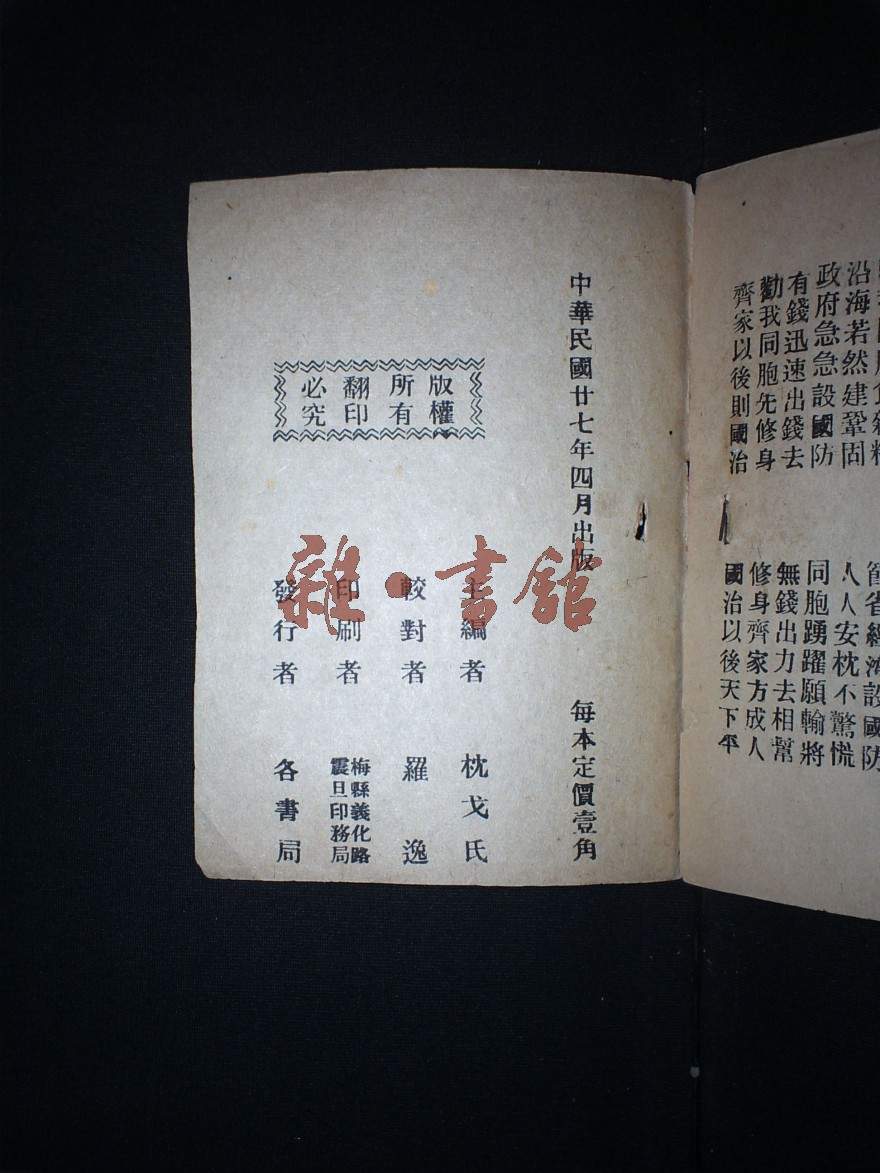 節省經濟設國防
沿海若然建鞏固
人人安枕不驚慌
政府急急設國防
同胞踴躍願輸將
有錢迅速出錢去
無錢出力去相幫
勸我同胞先修身
修身齊家方成人
齊家以後則國治
國治以後天下平
中華民國廿七年四月出版 每本定價壹角
版權所有翻印必究
主編者 枕戈氏
較對者 羅逸
印刷者 梅縣義化路震旦印務局
發行者 各書局
雜·書館